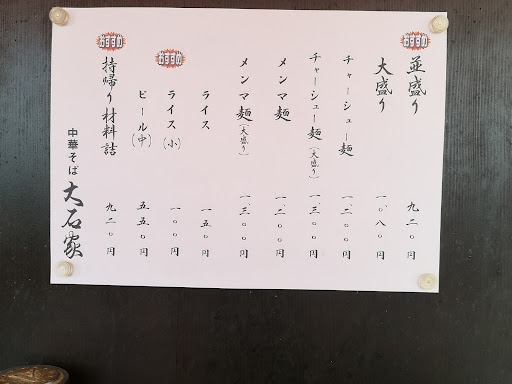 おすすめ
並盛り 九二〇円
大盛り 一、〇八〇円
チャーシュー麺 一、二〇〇円
チャーシュー麺(大盛り) 一、三〇〇円
メンマ麺 一、二〇〇円
メンマ麺(大盛り) 一、三〇〇円
ライス 一五〇円
おすすめ
ライス(小) 一〇〇円
ビール(中) 五五〇円
おすすめ
持帰り材料詰 九二〇円
中華そば 大石家